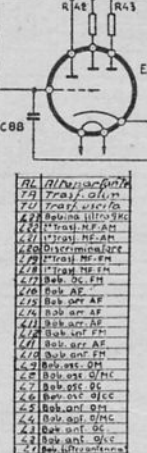 R42 R43
E
C88
AL Altoparlante
TA Trasf. alim
TU Trasf. uscita
L23 Bobina filtro 9Kc
L22 2° Trasf. M.F-AM
L21 1° Trasf. MF-AM
L20 Discriminatore
L19 2° Trasf. MF-FM
L18 1° Trasf MF FM
L17 Bob. OC. FM
L16 Bob AF
L15 Bob arr AF
L14 Bob arr AF
L13 Bob. arr. AF
L12 Bob ant FM
L11 Bob. arr AF
L10 Bob ant. FM
L9 Bob. osc. OM
L8 Bob. osc O/MC
L7 Bob. osc OC
L6 Bob osc O/CC
L5 Bob. ant OM
L4 Bob. ant. O/MC
L3 Bob ant. OC
L2 Bob. ant. O/CC
L1 Bob filtro antenna